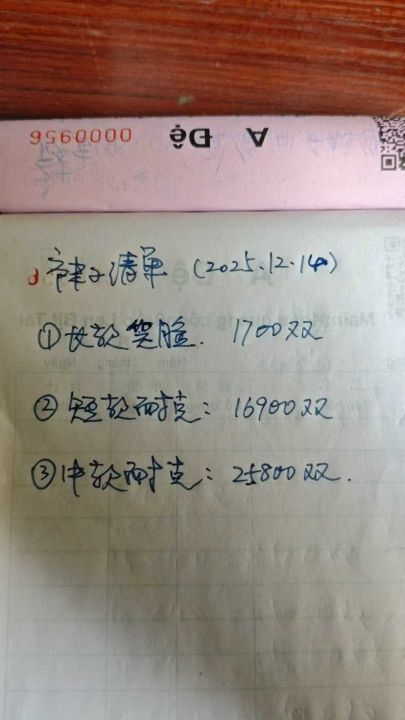 A Độ 0000956
袜子清单 (2025.12.14)
①长款笑脸. 1700双
②短款耐克: 16900双
③中款耐克: 25800双.